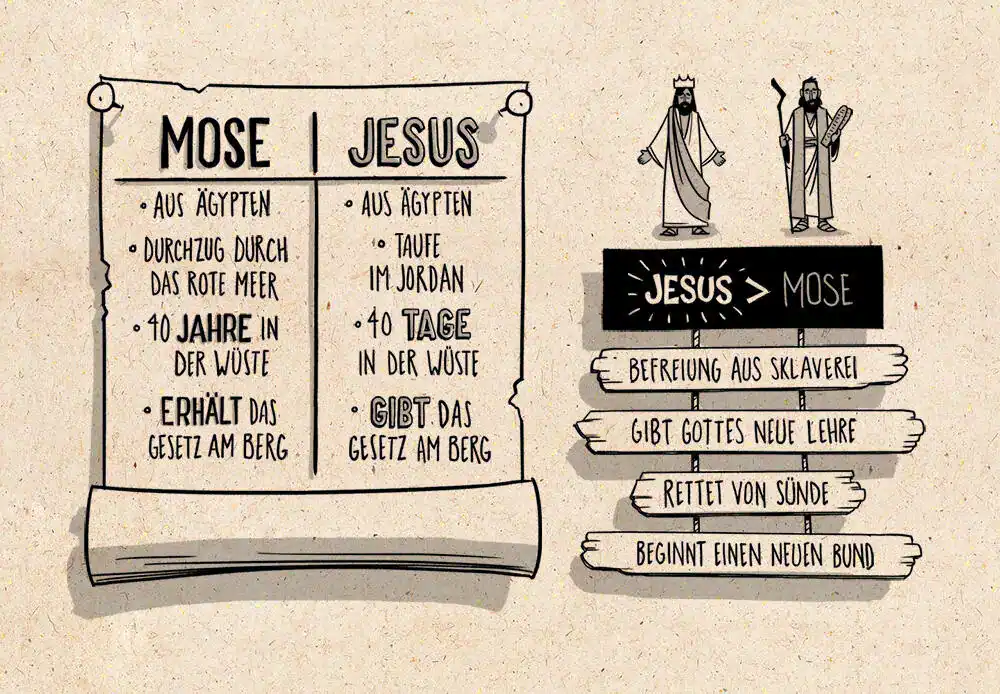 MOSE | JESUS
• AUS ÄGYPTEN
• DURCHZUG DURCH
DAS ROTE MEER
• 40 JAHRE IN
DER WÜSTE
• ERHÄLT DAS
GESETZ AM BERG
• AUS ÄGYPTEN
• TAUFE
IM JORDAN
• 40 TAGE
IN DER WÜSTE
• GIBT DAS
GESETZ AM BERG
JESUS > MOSE
BEFREIUNG AUS SKLAVEREI
GIBT GOTTES NEUE LEHRE
RETTET VON SÜNDE
BEGINNT EINEN NEUEN BUND